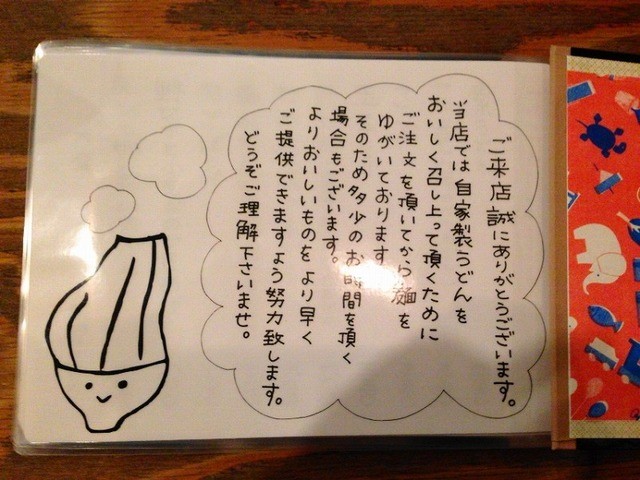 ご来店誠にありがとうございます。
当店では自家製うどんを
おいしく召し上って頂くために
ご注文を頂いてから麺を
ゆがいております。
そのため多少のお時間を頂く
場合もございます。
よりおいしいものをより早く
ご提供できますよう努力致します。
どうぞご理解下さいませ。